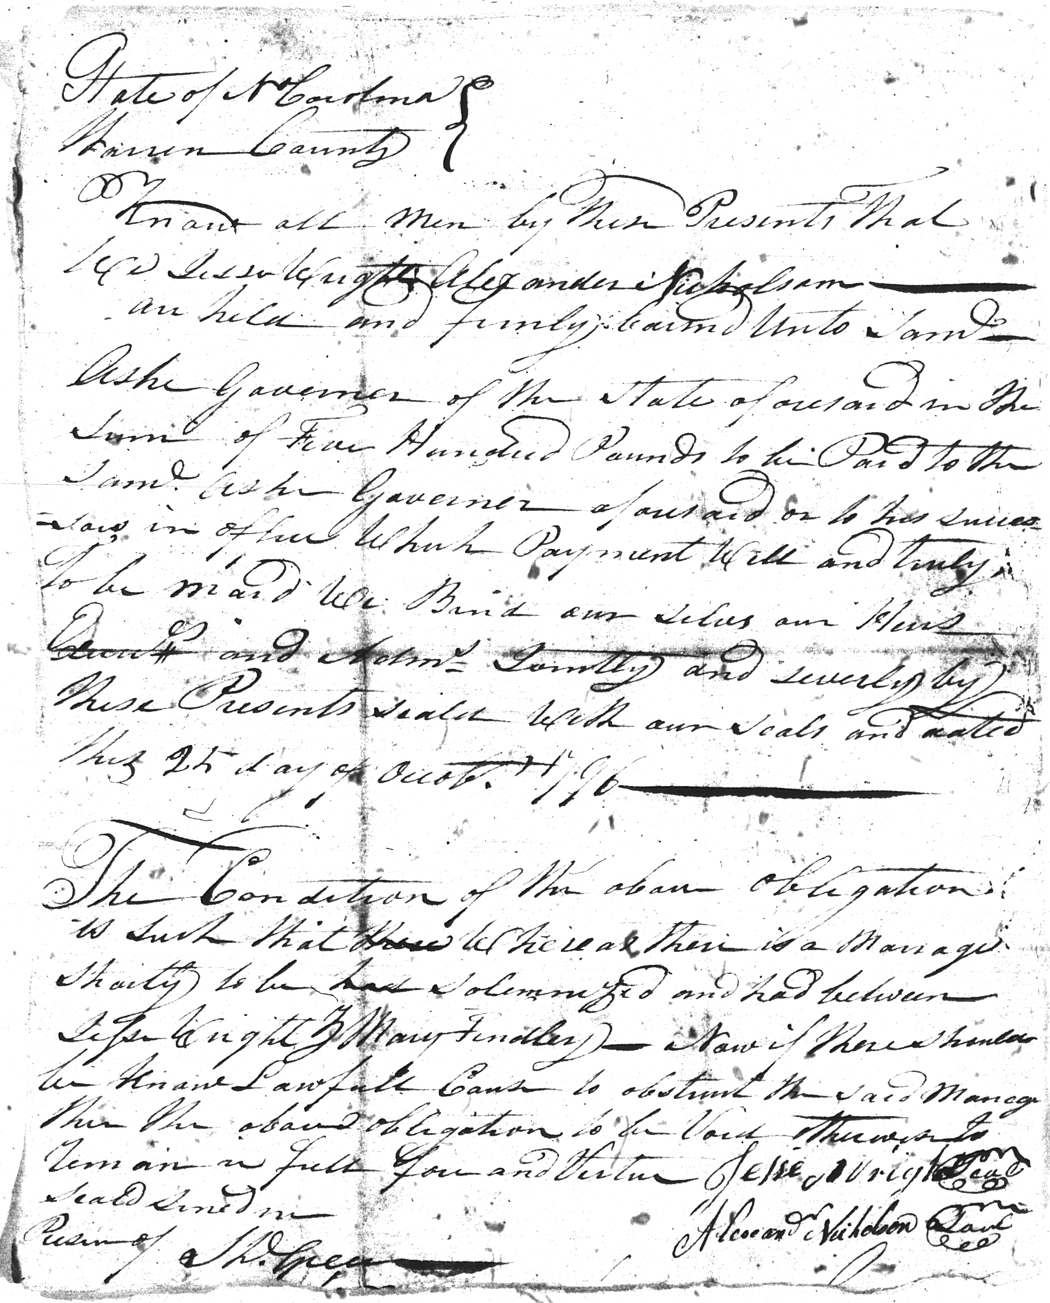 State of N Carolina
Warren County
Know all men by These Presents That
We Jesse Wright Alexander Nicholson
are held and firmly bound Unto Saml
Ashe Governer of the State aforesaid in the
Sum of Five Hundred Pounds to be Paid to the
Saml. Ashe Governer aforesaid or to his succes
=sors in office Which Payment Well and truly
to be maid We Bind our selves our Heirs
and Admrs Jointly and severly by
These Presents sealed With our seals and dated
this 25 day of Octob. 1796
The Condition of the above obligation
is such that Whereas there is a Marrage
shortly to be had solemnized and had between
Jesse Wright & Mary Findley Now if there should
be know Lawfull Cause to obstruct the said Marrege
then the above obligation to be Void otherwise to
remain in full force and Virtue Jesse Wright Seal
seald sined in
Presen of Alexandr Nicholson Seal
Shd. Green